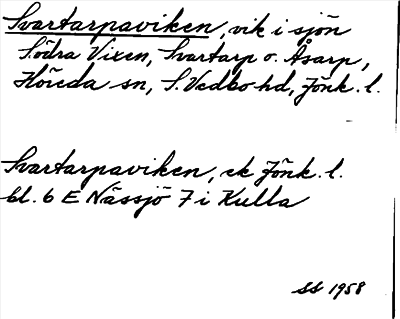 Svartarpaviken, vik i sjön
Södra Vixen, Svartarp o. Åsarp,
Höreda sn, S. Vedbo hd, Jönk. l.
Svartarpaviken, ek Jönk. l.
bl. 6 E Nässjö 7 i Kulla
SS 1958